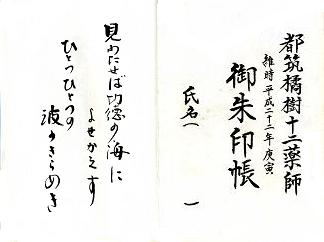 都筑橘樹十二薬師
維時平成二十二年庚寅
御朱印帳
氏名
見わたせば功徳の海に
よせかえす
ひとつひとつの
波がきらめき